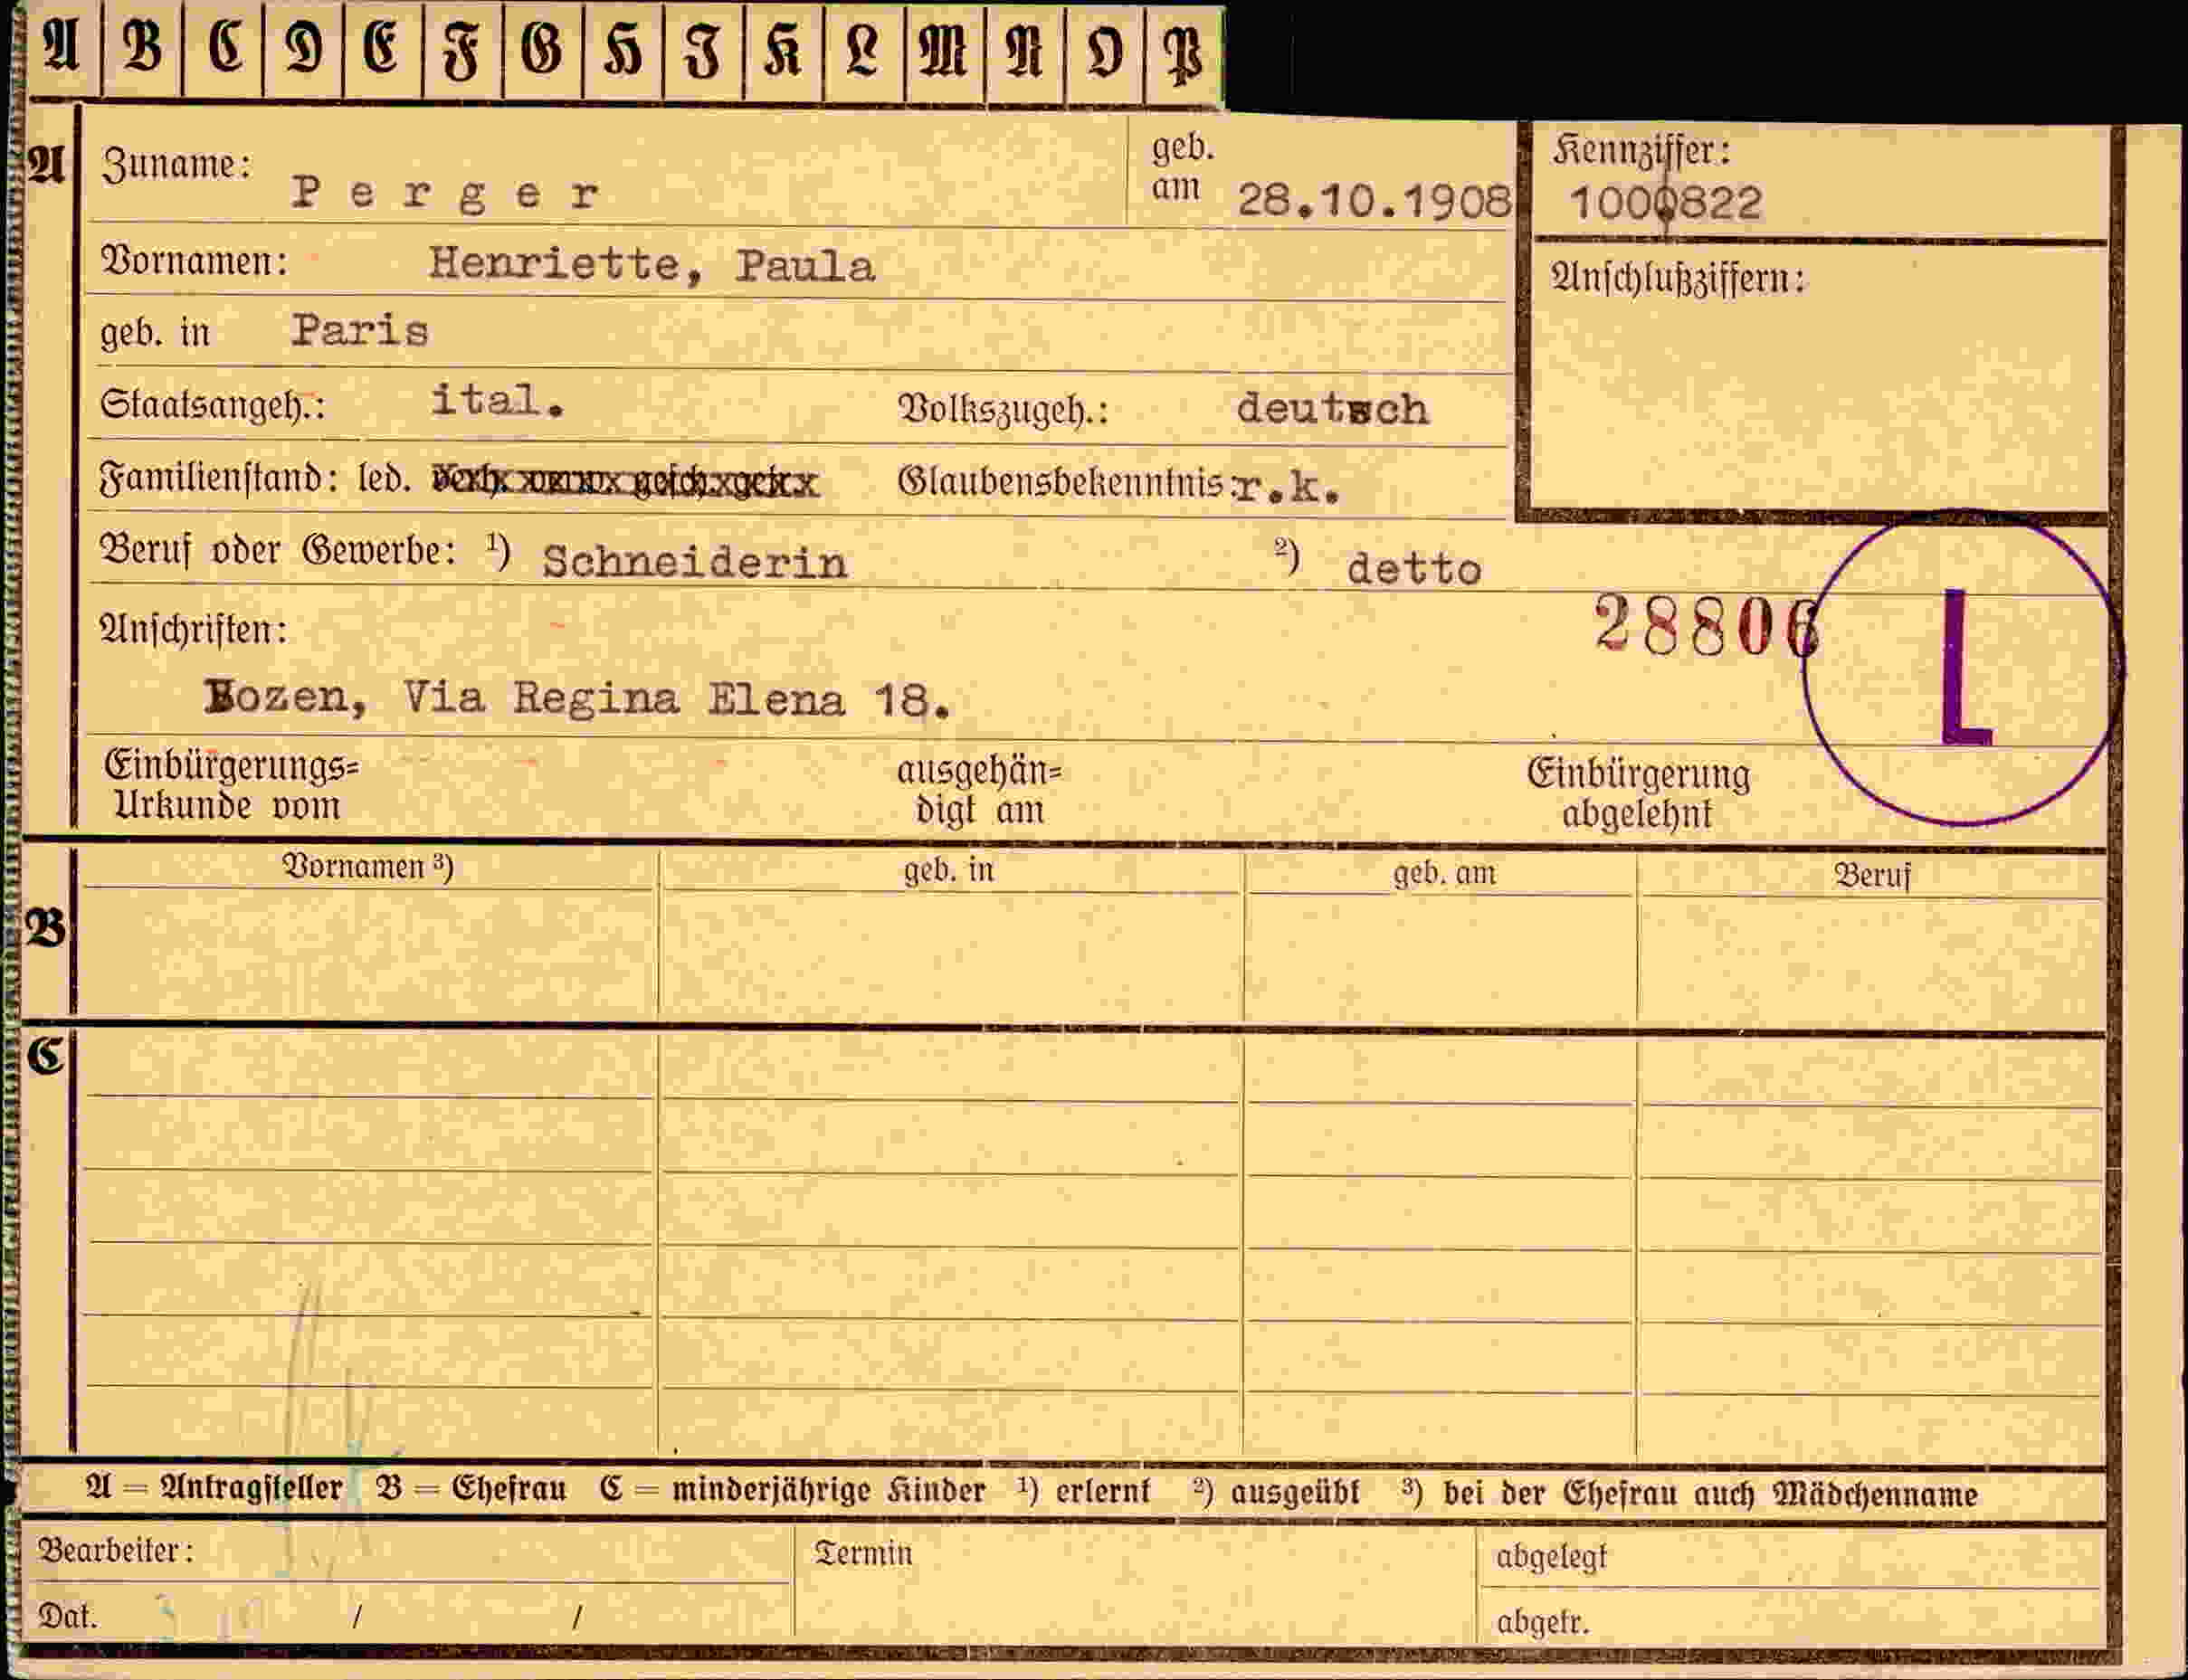 A B C D E F G H I K L M N O P
A Zuname: Perger geb. am 28.10.1908 Kennziffer: 1000822
Vornamen: Henriette, Paula Anschlußziffern:
geb. in Paris
Staatsangeh.: ital. Volkszugeh.: deutsch
Familienstand: led. verh. verw. gesch. getr. Glaubensbekenntnis: r.k.
Beruf oder Gewerbe: ¹) Schneiderin ²) detto
Anschriften: 28806 L
Bozen, Via Regina Elena 18.
Einbürgerungs= ausgehän= Einbürgerung
Urkunde vom digt am abgelehnt
Vornamen ³) geb. in geb. am Beruf
B
C
A = Antragsteller B = Ehefrau C = minderjährige Kinder ¹) erlernt ²) ausgeübt ³) bei der Ehefrau auch Mädchenname
Bearbeiter: Termin abgelegt
Dat. / / abgetr.